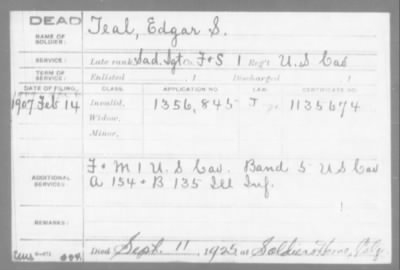 DEAD
NAME OF SOLDIER: Teal, Edgar S.
SERVICE: Late rank Sad. Sgt Co. F+S 1 Reg't U.S Cav
TERM OF SERVICE: Enlisted , 1 Discharged , 1
DATE OF FILING. CLASS. APPLICATION NO. LAW. CERTIFICATE NO.
1907 Feb 14 Invalid, 1356,845 J 1135674
Widow,
Minor,
ADDITIONAL SERVICES: F + M 1 U.S Cav. Band 5 U S Cav
A 154 + B 135 Ill Inf.
REMARKS:
Died Sept. 11, 1925 at Soldiers Home,